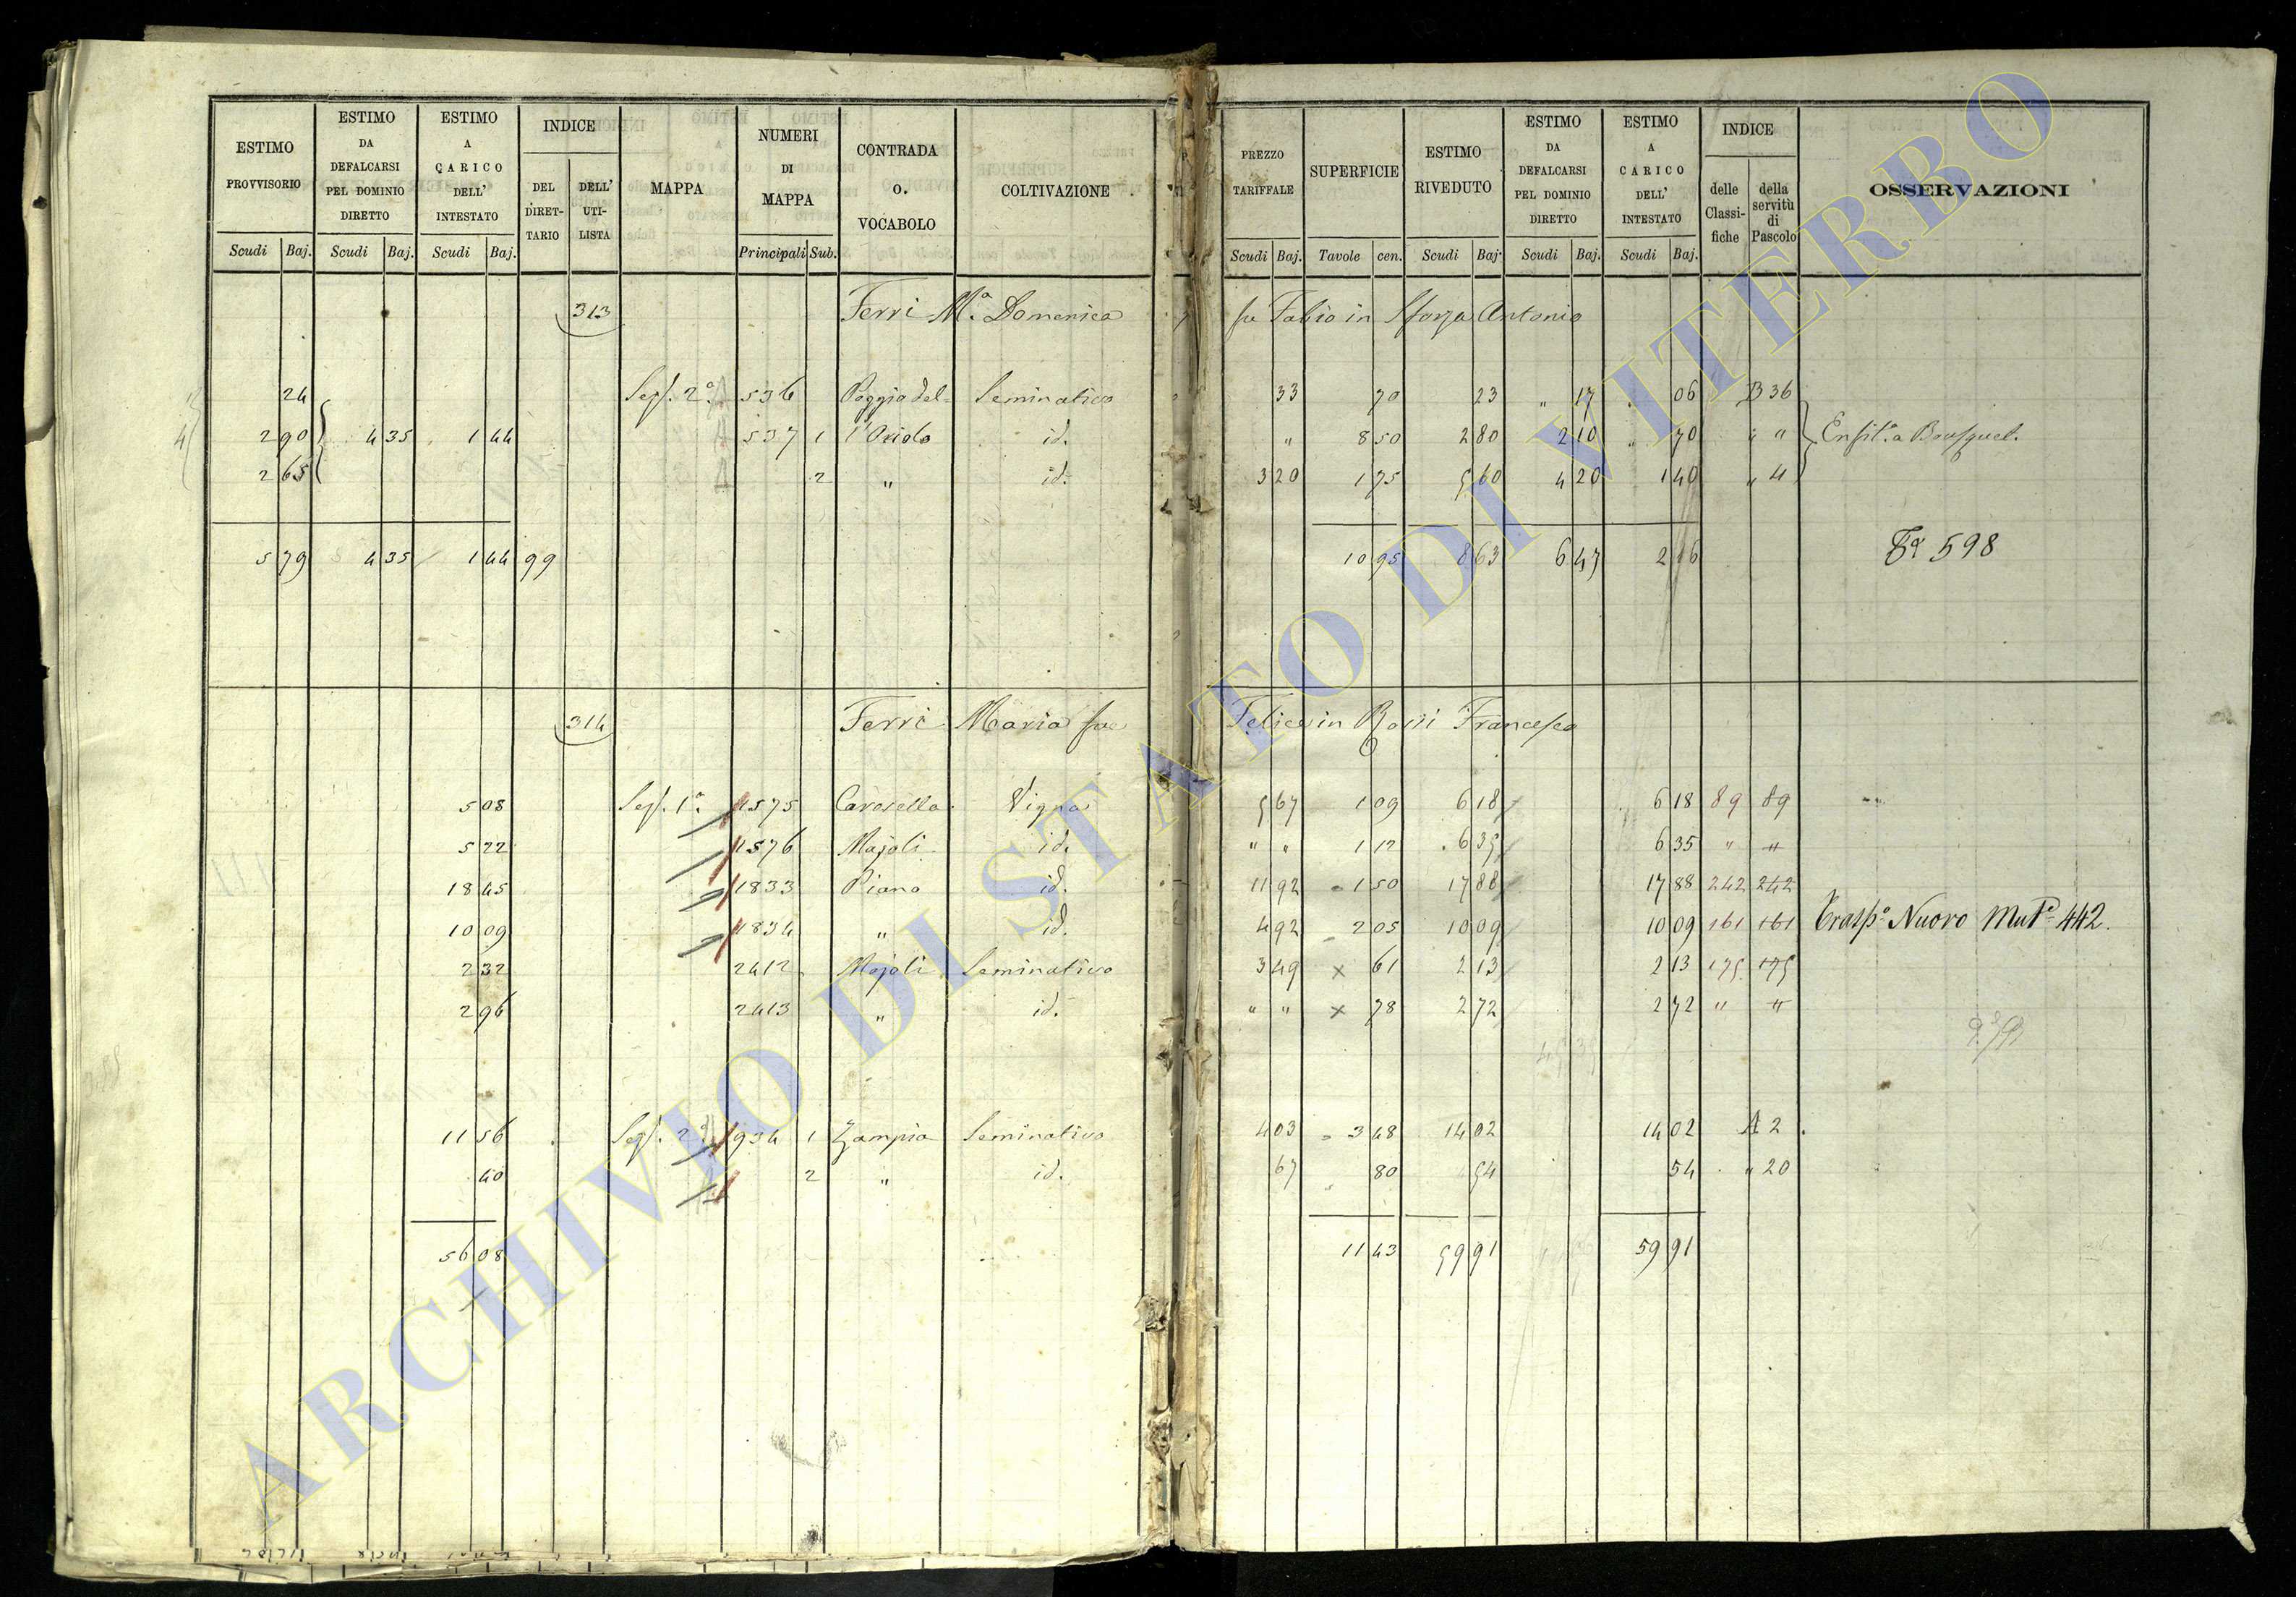 ESTIMO PROVVISORIO Scudi Baj. ESTIMO DA DEFALCARSI PEL DOMINIO DIRETTO Scudi Baj. ESTIMO A CARICO DELL' INTESTATO Scudi Baj. INDICE DEL DIRET-TARIO DELL' UTI-LISTA MAPPA NUMERI DI MAPPA Principali Sub. CONTRADA O. VOCABOLO COLTIVAZIONE
PREZZO TARIFFALE Scudi Baj. SUPERFICIE Tavole cen. ESTIMO RIVEDUTO Scudi Baj. ESTIMO DA DEFALCARSI PEL DOMINIO DIRETTO Scudi Baj. ESTIMO A CARICO DELL' INTESTATO Scudi Baj. INDICE delle Classi-fiche della servitù di Pascolo OSSERVAZIONI
313 Ferri M.ª Domenica fu Fabio in Sforza Antonio
24 Sez. 2ª 536 Poggio del- Seminativo 33 70 23 " 17 06 B 36
2 90 4 35 1 44 537 1 l'Oriolo id. " 8 50 2 80 2 10 " 70 " " a Bousquet.
2 65 2 " id. 3 20 1 75 5 60 4 20 1 40 " 4
5 79 4 35 1 44 99 10 95 8 63 6 47 2 16 598
314 Ferri Maria fu Felice in Rossi Francesco
5 08 Sez. 1ª 1575 Carosella Vigna 5 67 1 09 6 18 6 18 89 89
5 22 1576 Majoli id. " " 1 12 6 35 6 35 " "
18 45 1833 Piano id. 11 92 1 50 17 88 17 88 242 242
10 09 1834 " id. 4 92 2 05 10 09 10 09 161 161 Trasp.º Nuovo Mut.e 442.
2 32 2412 Majoli Seminativo 3 49 x 61 2 13 2 13 175 175
2 96 2413 " id. " " x 78 2 72 2 72 " "
11 56 Sez. 2ª 934 1 Zampia Seminativo 4 03 3 48 14 02 14 02 A 2
40 2 " id. 67 80 54 54 " 20
56 08 11 43 59 91 59 91
ARCHIVIO DI STATO DI VITERBO